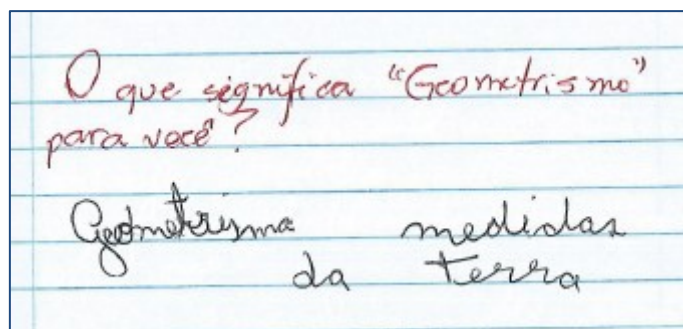 O que significa "Geometrismo"
para você?
Geometrismo medidas
da terra